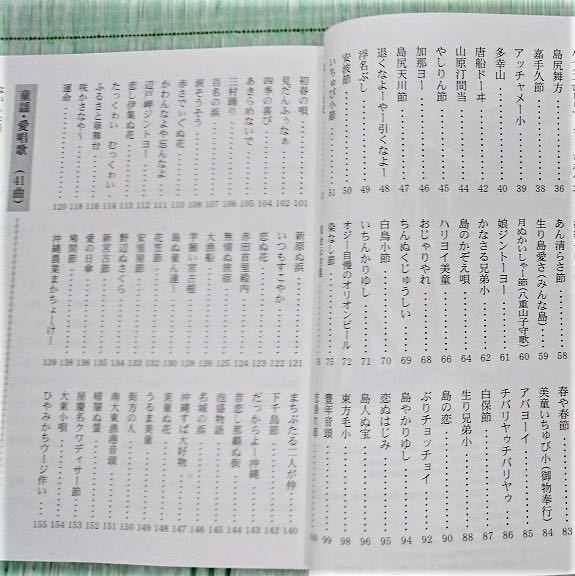 島尻舞方 36
嘉手久節 38
アッチャメー小 39
多幸山 40
唐船ドーヰ 42
山原汀間当 44
やしりん節 45
加那ヨー 46
島尻天川節 47
退くなよーやー引くなよー 48
浮名ぶし 49
安波節 50
いちゅび小節 51
あん清らさ節 58
生り島愛さ(みんな島) 59
月ぬかいしゃー節(八重山子守歌) 60
娘ジントーヨー 61
かなさる兄弟小 62
島のかぞえ唄 64
ハリヨイ美童 66
おじゃりやれ 68
ちんぬくじゅうしい 69
白鳥小節 70
いちんかりゆし 71
オジー自慢のオリオンビール 72
染なし節 75
76
春や春節 83
美童いちゅび小(御物奉行) 84
アバヨーイ 85
チバリヤゥチバリヤゥ 86
白保節 87
生り兄弟小 88
島の恋 90
ぶりチョッチョイ 92
島やかりゆし 94
恋ぬはじみ 95
島人ぬ宝 96
東方毛小 98
豊年音頭 99
100
初春の唄 101
見だんふぅなぁ 102
四季の喜び 104
あきらめないで 105
三村踊り 106
百名の浜 107
涙そうそう 108
赤さてぃぐぬ花 110
かわんなよや忘んなよ 111
辺戸岬ジントヨー 112
恋し伊集ぬ花 113
たっくゎい むっくゎい 114
ふるさと華舞台 116
咲かさなや〜 118
運命 120
童謡・愛唱歌 (41曲)
新原ぬ浜 121
いつもすこやか 122
恋ぬ花 123
赤田首里殿内 124
無情ぬ旅宿 125
大漁船 126
芋掘い宮古根 127
島ぬ童ん達 128
花笠節 130
安里屋節 132
野辺ぬさくら 133
新宮古節 134
愛の日傘 136
鳩間節 138
沖縄農業まかちょーけー 139
まちぶたる二人が仲 140
下千鳥節 142
だっからよー沖縄 143
昔恋し那覇ぬ街 144
泡盛物語 145
名城の浜 146
沖縄すば大好物 147
美童ぬ花 148
うるま美童 149
街方の人 150
南大東漁港音頭 151
暗闇ぬ螢 152
屋慶名クワディサー節 153
大東小唄 154
ひやみかちウージ作い 155